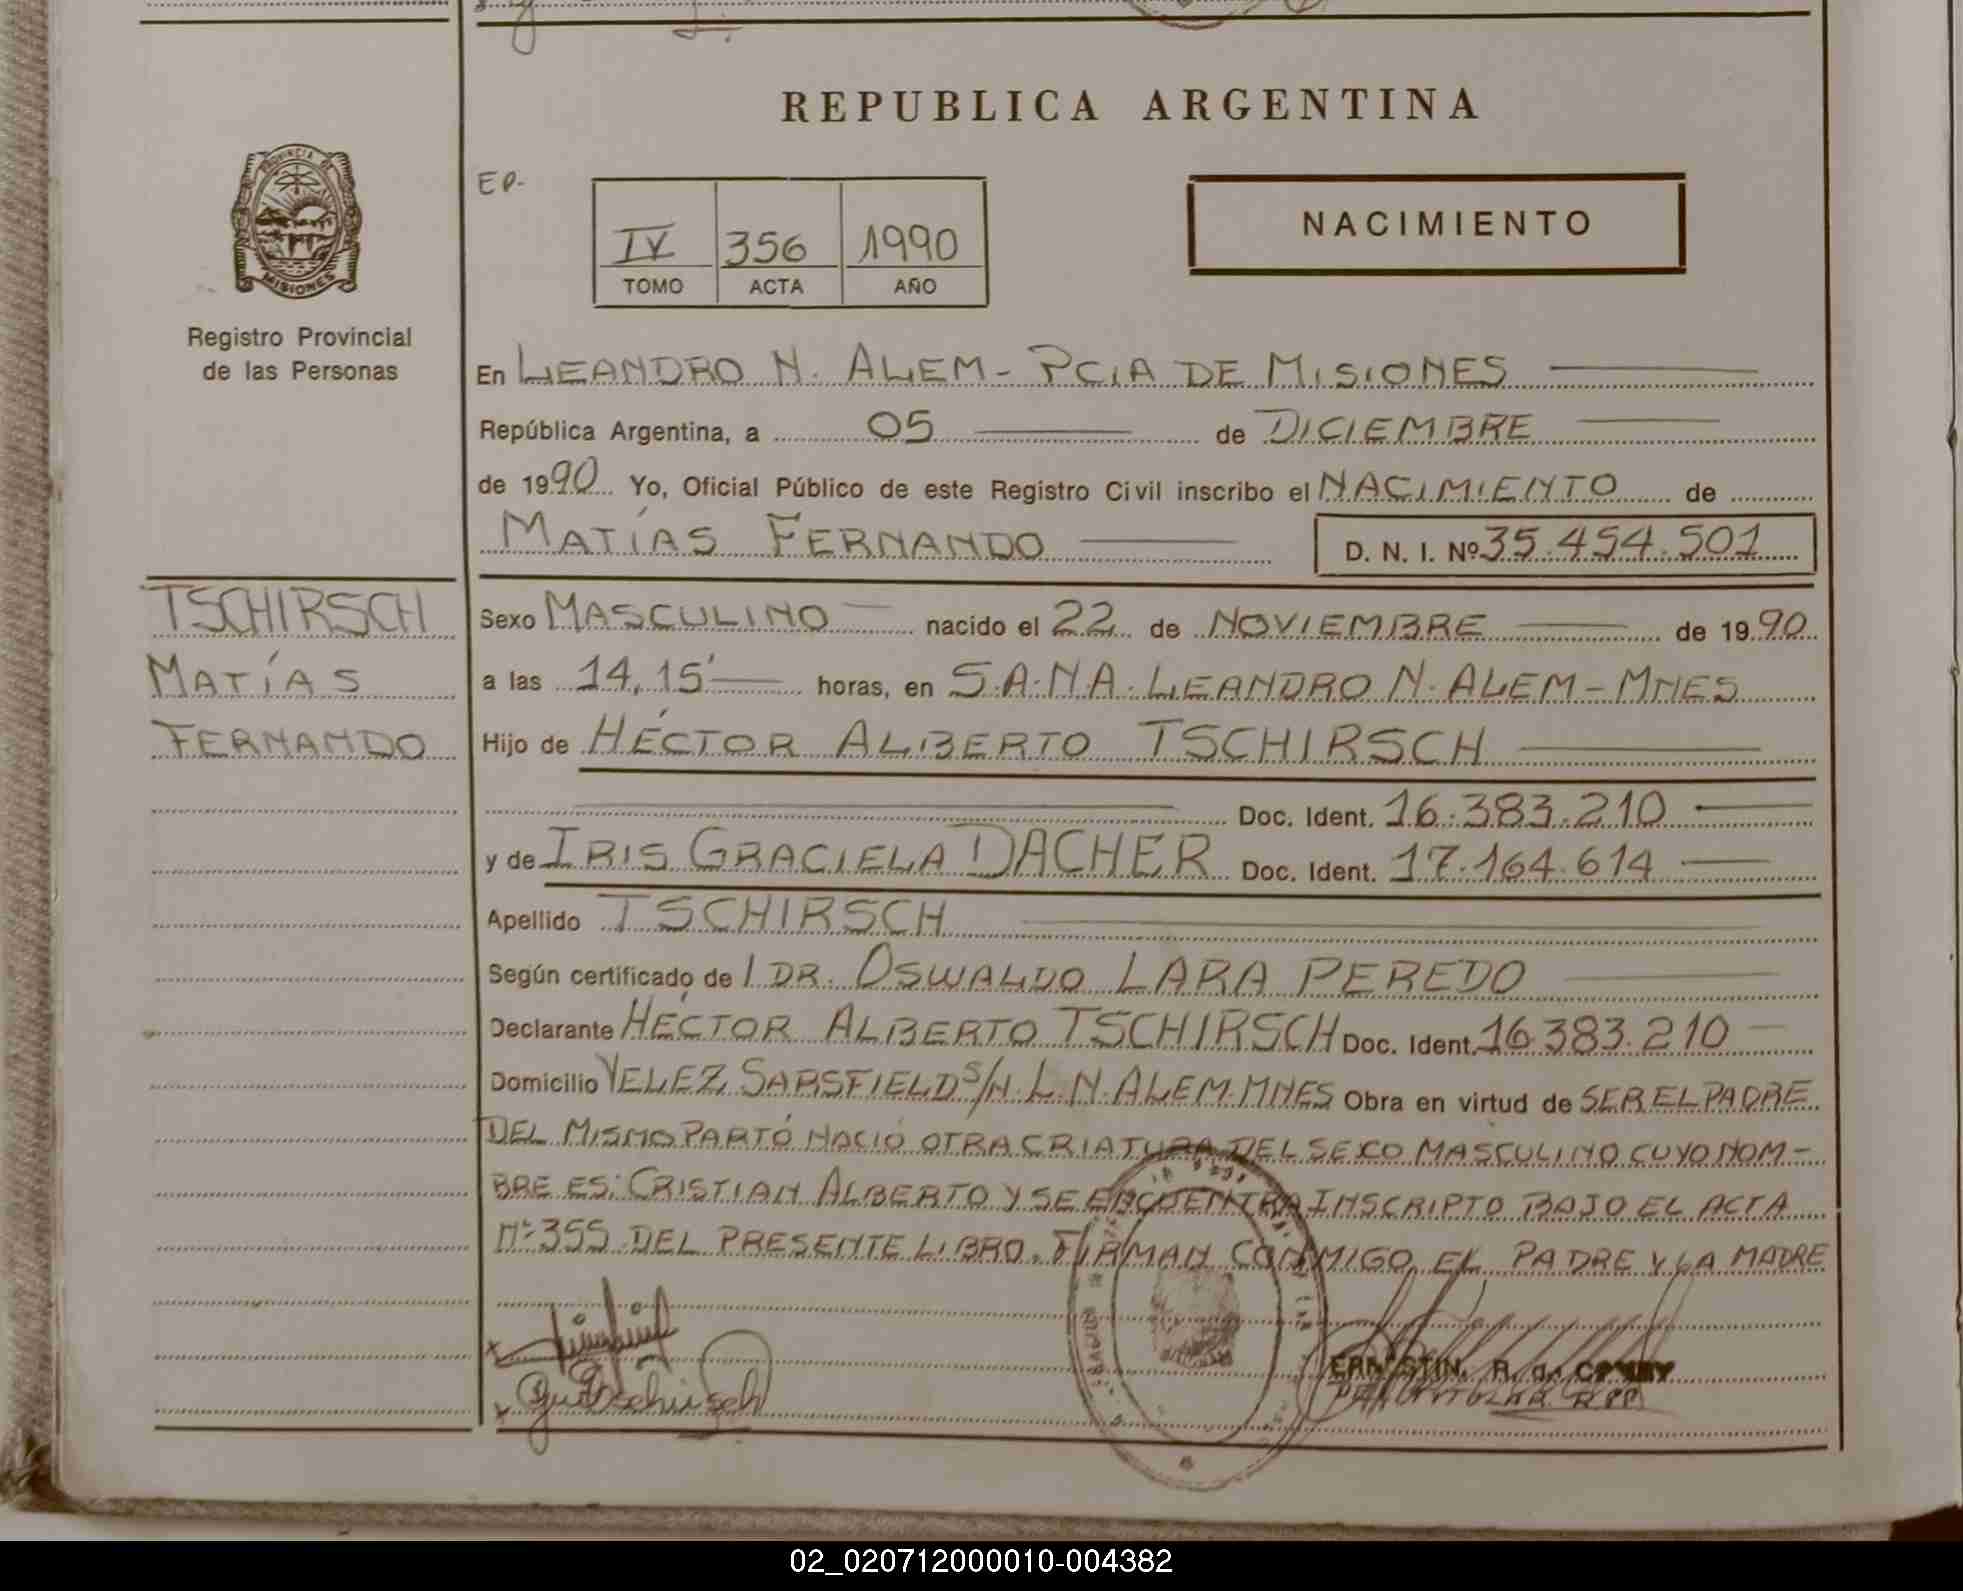 REPUBLICA ARGENTINA
PROVINCIA DE
MISIONES
Registro Provincial
de las Personas
EP-
IV 356 1990
TOMO ACTA AÑO
NACIMIENTO
En LEANDRO N. ALEM - PCIA DE MISIONES
República Argentina, a 05 de DICIEMBRE
de 1990 Yo, Oficial Público de este Registro Civil inscribo el NACIMIENTO de
MATÍAS FERNANDO D. N. I. Nº 35.454.501
TSCHIRSCH
MATÍAS
FERNANDO
Sexo MASCULINO nacido el 22 de NOVIEMBRE de 1990
a las 14,15' horas, en S.A.N.A. LEANDRO N. ALEM - MNES
Hijo de HÉCTOR ALBERTO TSCHIRSCH
Doc. Ident. 16.383.210
y de IRIS GRACIELA DACHER Doc. Ident. 17.164.614
Apellido TSCHIRSCH
Según certificado de l DR. OSWALDO LARA PEREDO
Declarante HÉCTOR ALBERTO TSCHIRSCH Doc. Ident. 16.383.210
Domicilio VELEZ SARSFIELD S/N. L. N. ALEM. MNES Obra en virtud de SER EL PADRE
DEL MISMO PARTÓ NACIÓ OTRA CRIATURA DEL SEXO MASCULINO CUYO NOM-
BRE ES: CRISTIAN ALBERTO Y SE ENCUENTRA INSCRIPTO BAJO EL ACTA
Nº 355 DEL PRESENTE LIBRO. FIRMAN CONMIGO EL PADRE Y LA MADRE
02_020712000010-004382